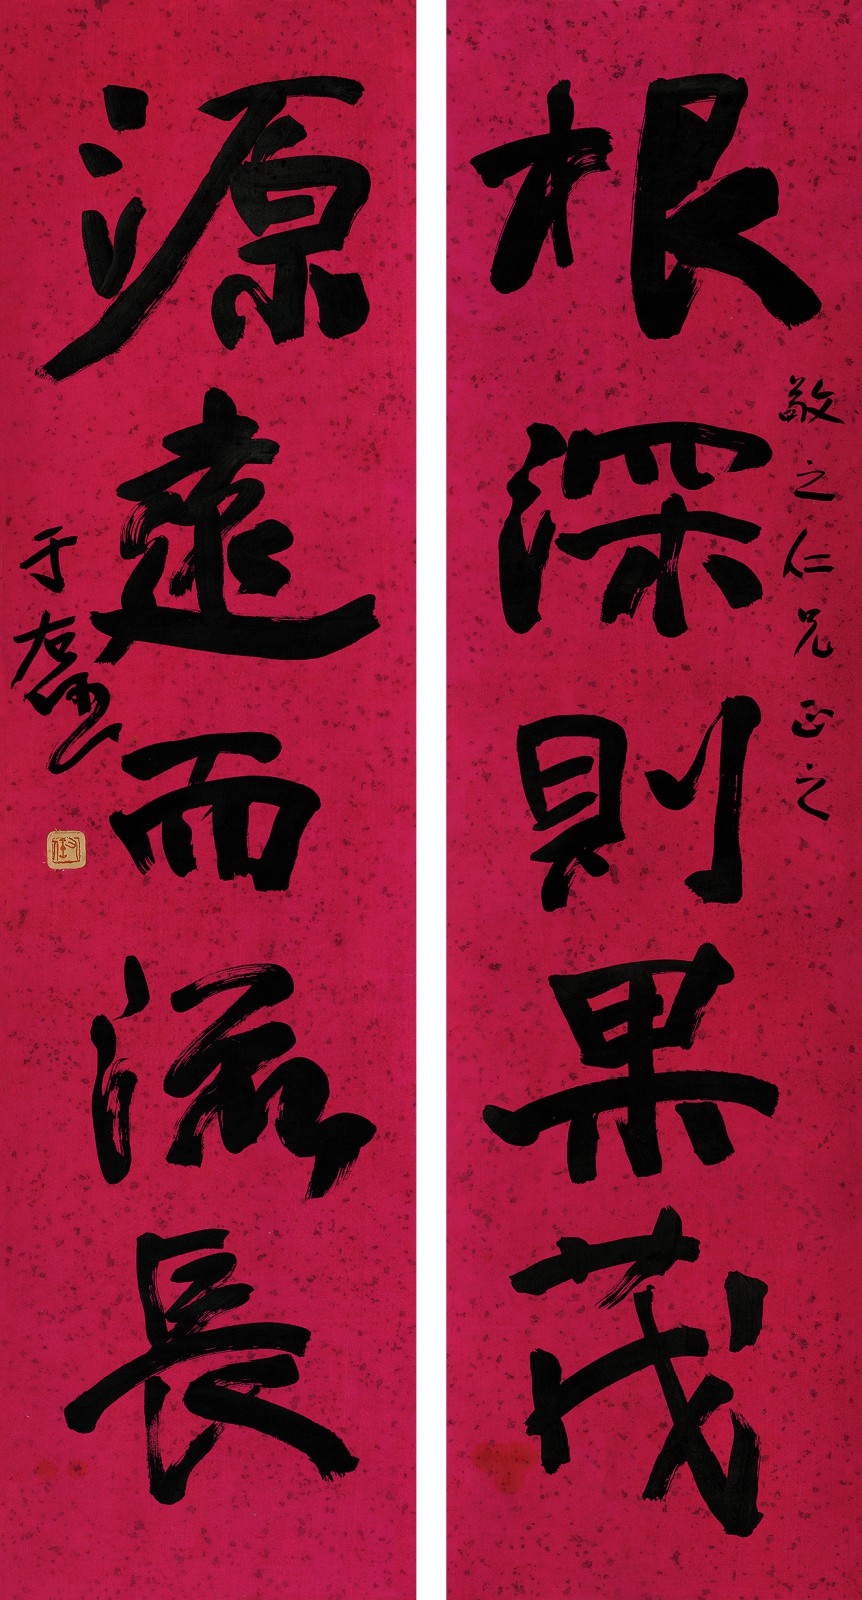 根深則果茂
敬之仁兄正之
源遠而流長
于右任